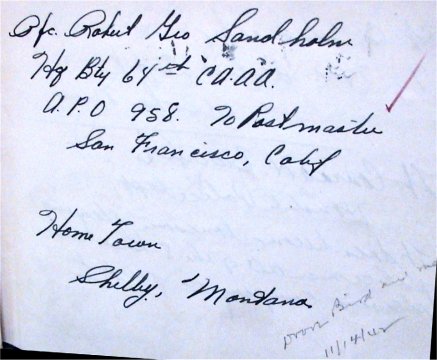 Pfc. Robert Geo Sandholm
Hq Bty 64th CA.AA.
A.P.O 958. To Postmaster
San Francisco, Calif
Home Town
Shelby, Montana
11/14/42